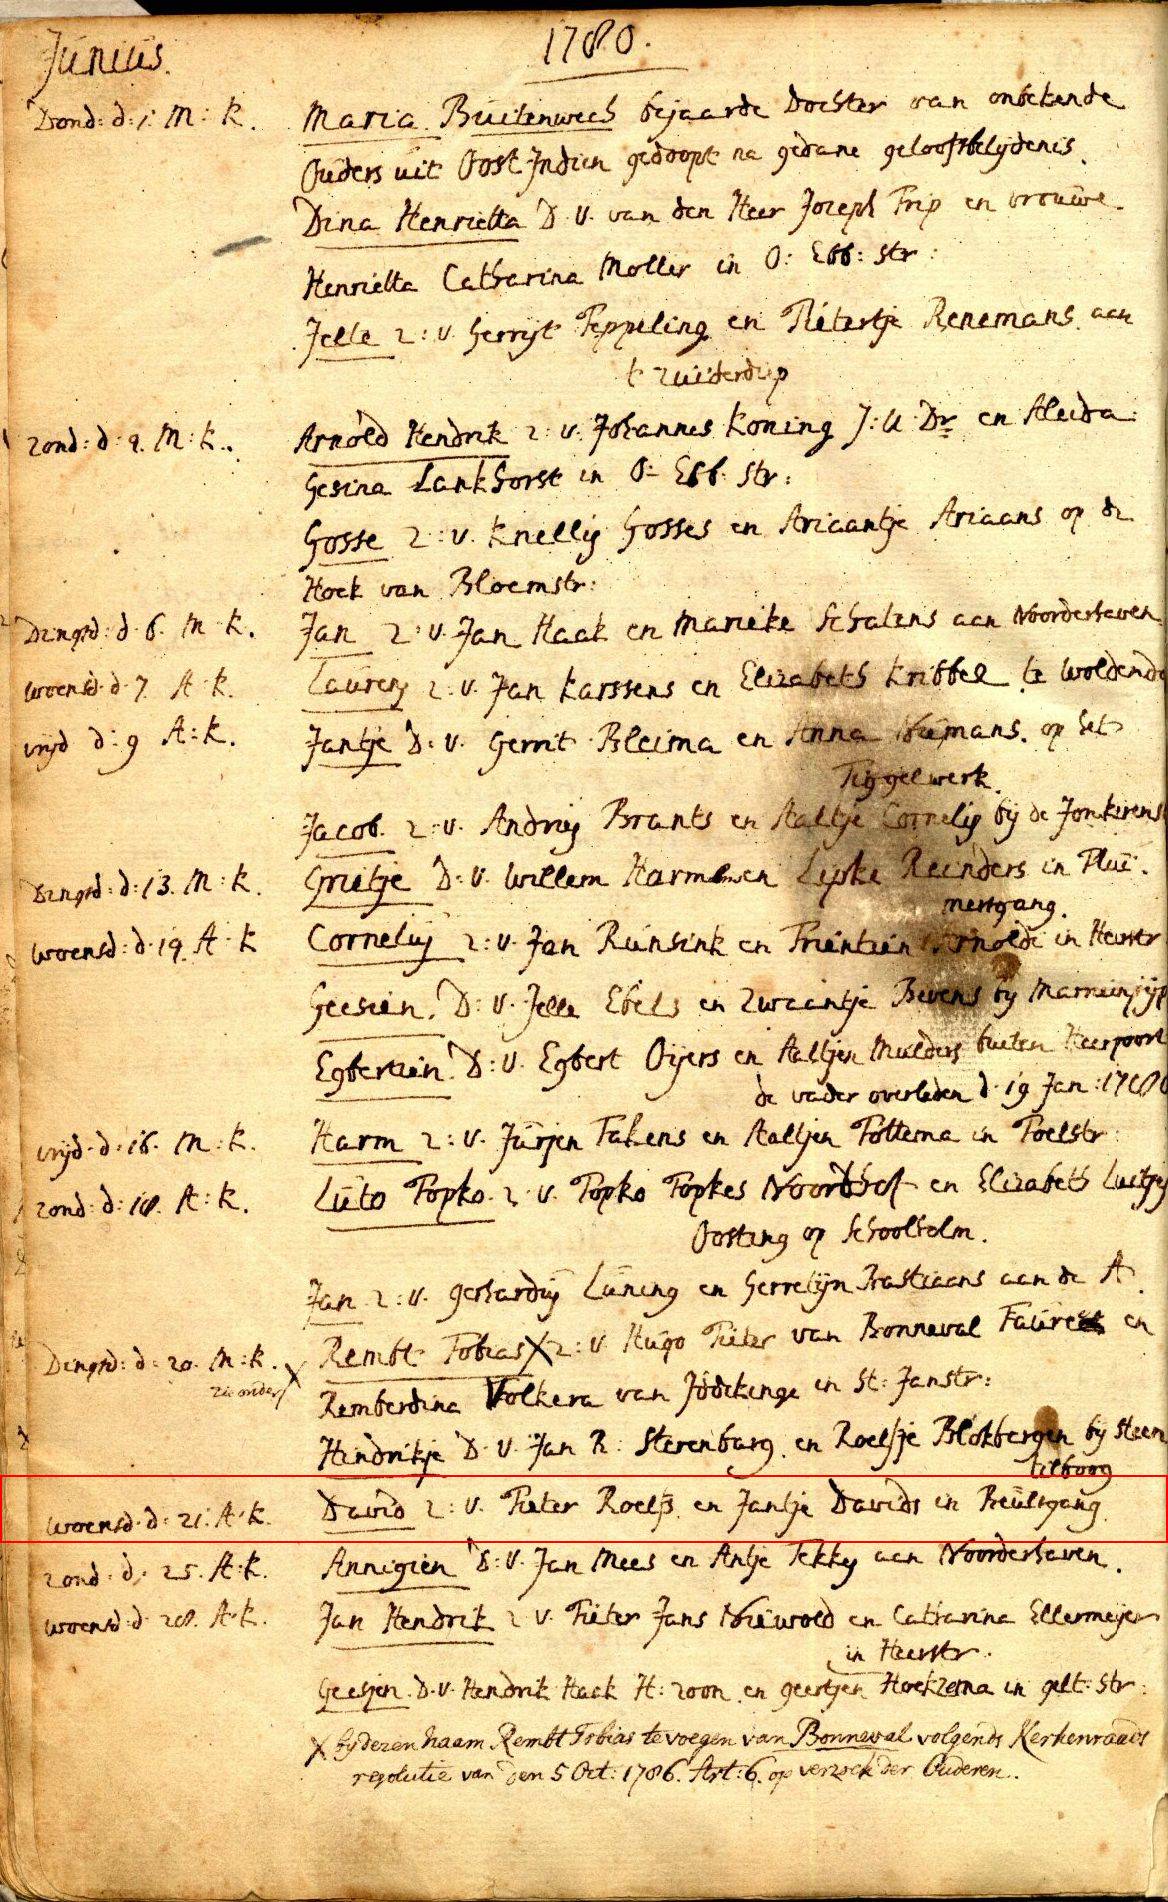 Junius. 1780.
Dond: d: 1. M: K. Maria Buitenwech bejaarde dochter van onbekende
Ouders uit Oost Indien gedoopt na gedane geloofsbelydenis.
Dina Henrietta D. v. van den Heer Joseph Trip en vrouwe.
Henrietta Catharina Moller in O: Ebb: Str:
Jelle z: v. Gerryt Peppeling en Pietertje Renemans aan
't zuiderdiep
zond: d: M: K. Arnold Hendrik z: v. Johannes Koning J: U: Dr en Aleida
Gesina Lankhorst in O: Ebb. Str:
Gosse z: v. Knellis Gosses en Ariaantje Ariaans op de
Hoek van Bloemstr:
Dingsd: d. 6. M: K. Jan z: v. Jan Haak en Marieke Schalens aan Noorderhaven
woensd. d. 7. A: K. Laurens z: v. Jan Karssens en Elizabeth Kribbel te Woldendo
vrijd d: 9 A: K. Jantje D: v. Gerrit Bleima en Anna op het
Tiggelwerk.
Jacob. z: v. Andries Brants en Aaltje Cornelis bij de Jonkerens
Dingsd: d: 13. M: K. Grietje D: v. Willem Harmsen Lipke Reinders in Plui-
mersgang.
woensd: d. 19 A: K Cornelis z: v. Jan Runsink en Trientien Arnolde in Heerstr
Geesien. D: v. Jelle Ebels en Zwaantje Bevens by
Egbertien. D: v. Egbert Oijers en Aaltjen Mulders buiten Heerpoort
de vader overleden d. 19 Jan: 1780
vrijd. d. 16. M: K. Harm z: v. Jurjen Takens en Aaltjen Pottema in Poelstr:
zond: d: 18. A: K. Luto Popko. z: v. Popko Popkes Noordhof en Elizabeth Luitjes
Oosting op Schoolholm.
Jan z: v. Gerhardus Luning en Gerrelijn Bastiaans aan de A.
Dingsd: d: 20. M: K. Rembt Tobias X z: v. Hugo Pieter van Bonneval Faure en
zie onder X
Remberdina Volkera van Iddekenge in St: Janstr:
Hendrikje D. v. Jan R: Sterenburg en Roelfje Blokbergen by Steen
tilboog
woensd. d: 21. A: K. David z: v. Pieter Roelfs en Jantje Davids in Beultsgang.
zond: d: 25. A: K. Annigien D: v. Jan Mees en Antje Tekkes aan Noorderhaven.
woensd: d 28. A: K. Jan Hendrik z v. Pieter Jans Niewold en Catharina Ellermeijer
in Heerstr.
Geesjen D. v. Hendrik Haak H: zoon en geertjen Hoekzema in gelk: Str:
X by dezen naam Rembt Tobias te voegen van Bonneval volgends Kerkenraads
resolutie van den 5 Oct: 1786. Art: 6. op verzoek der Ouderen.